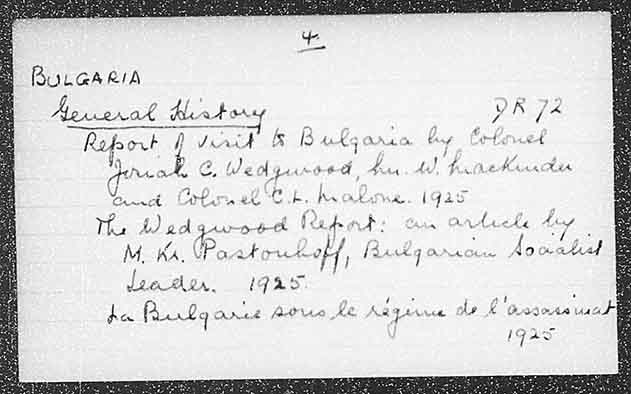 4.
BULGARIA
General History DR 72
Report of visit to Bulgaria by Colonel
Josiah C. Wedgwood, Mr. W. Mackinder
and Colonel C.L. Malone. 1925
The Wedgwood Report: an article by
M. Kr. Pastouhoff, Bulgarian Socialist
Leader. 1925.
La Bulgarie sous le régime de l'assassinat
1925